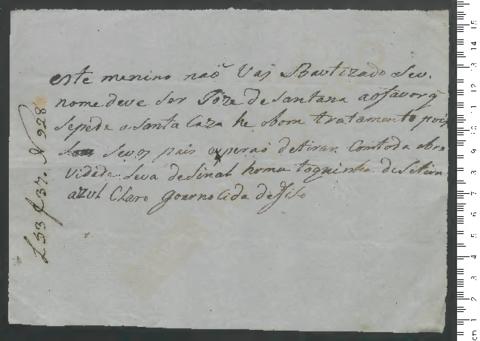 este menino naõ Vaj Bautizado Seu
nome deve ser Joze de Santana o favor q
se pede a Santa Caza he o bom tratamento pois
Seus pais esperaõ de tirar Com toda a bre
Vidade Leva de Sinal huma toquinha de Setim
azul Claro goarnecida de filo
L33 f 37. N 928